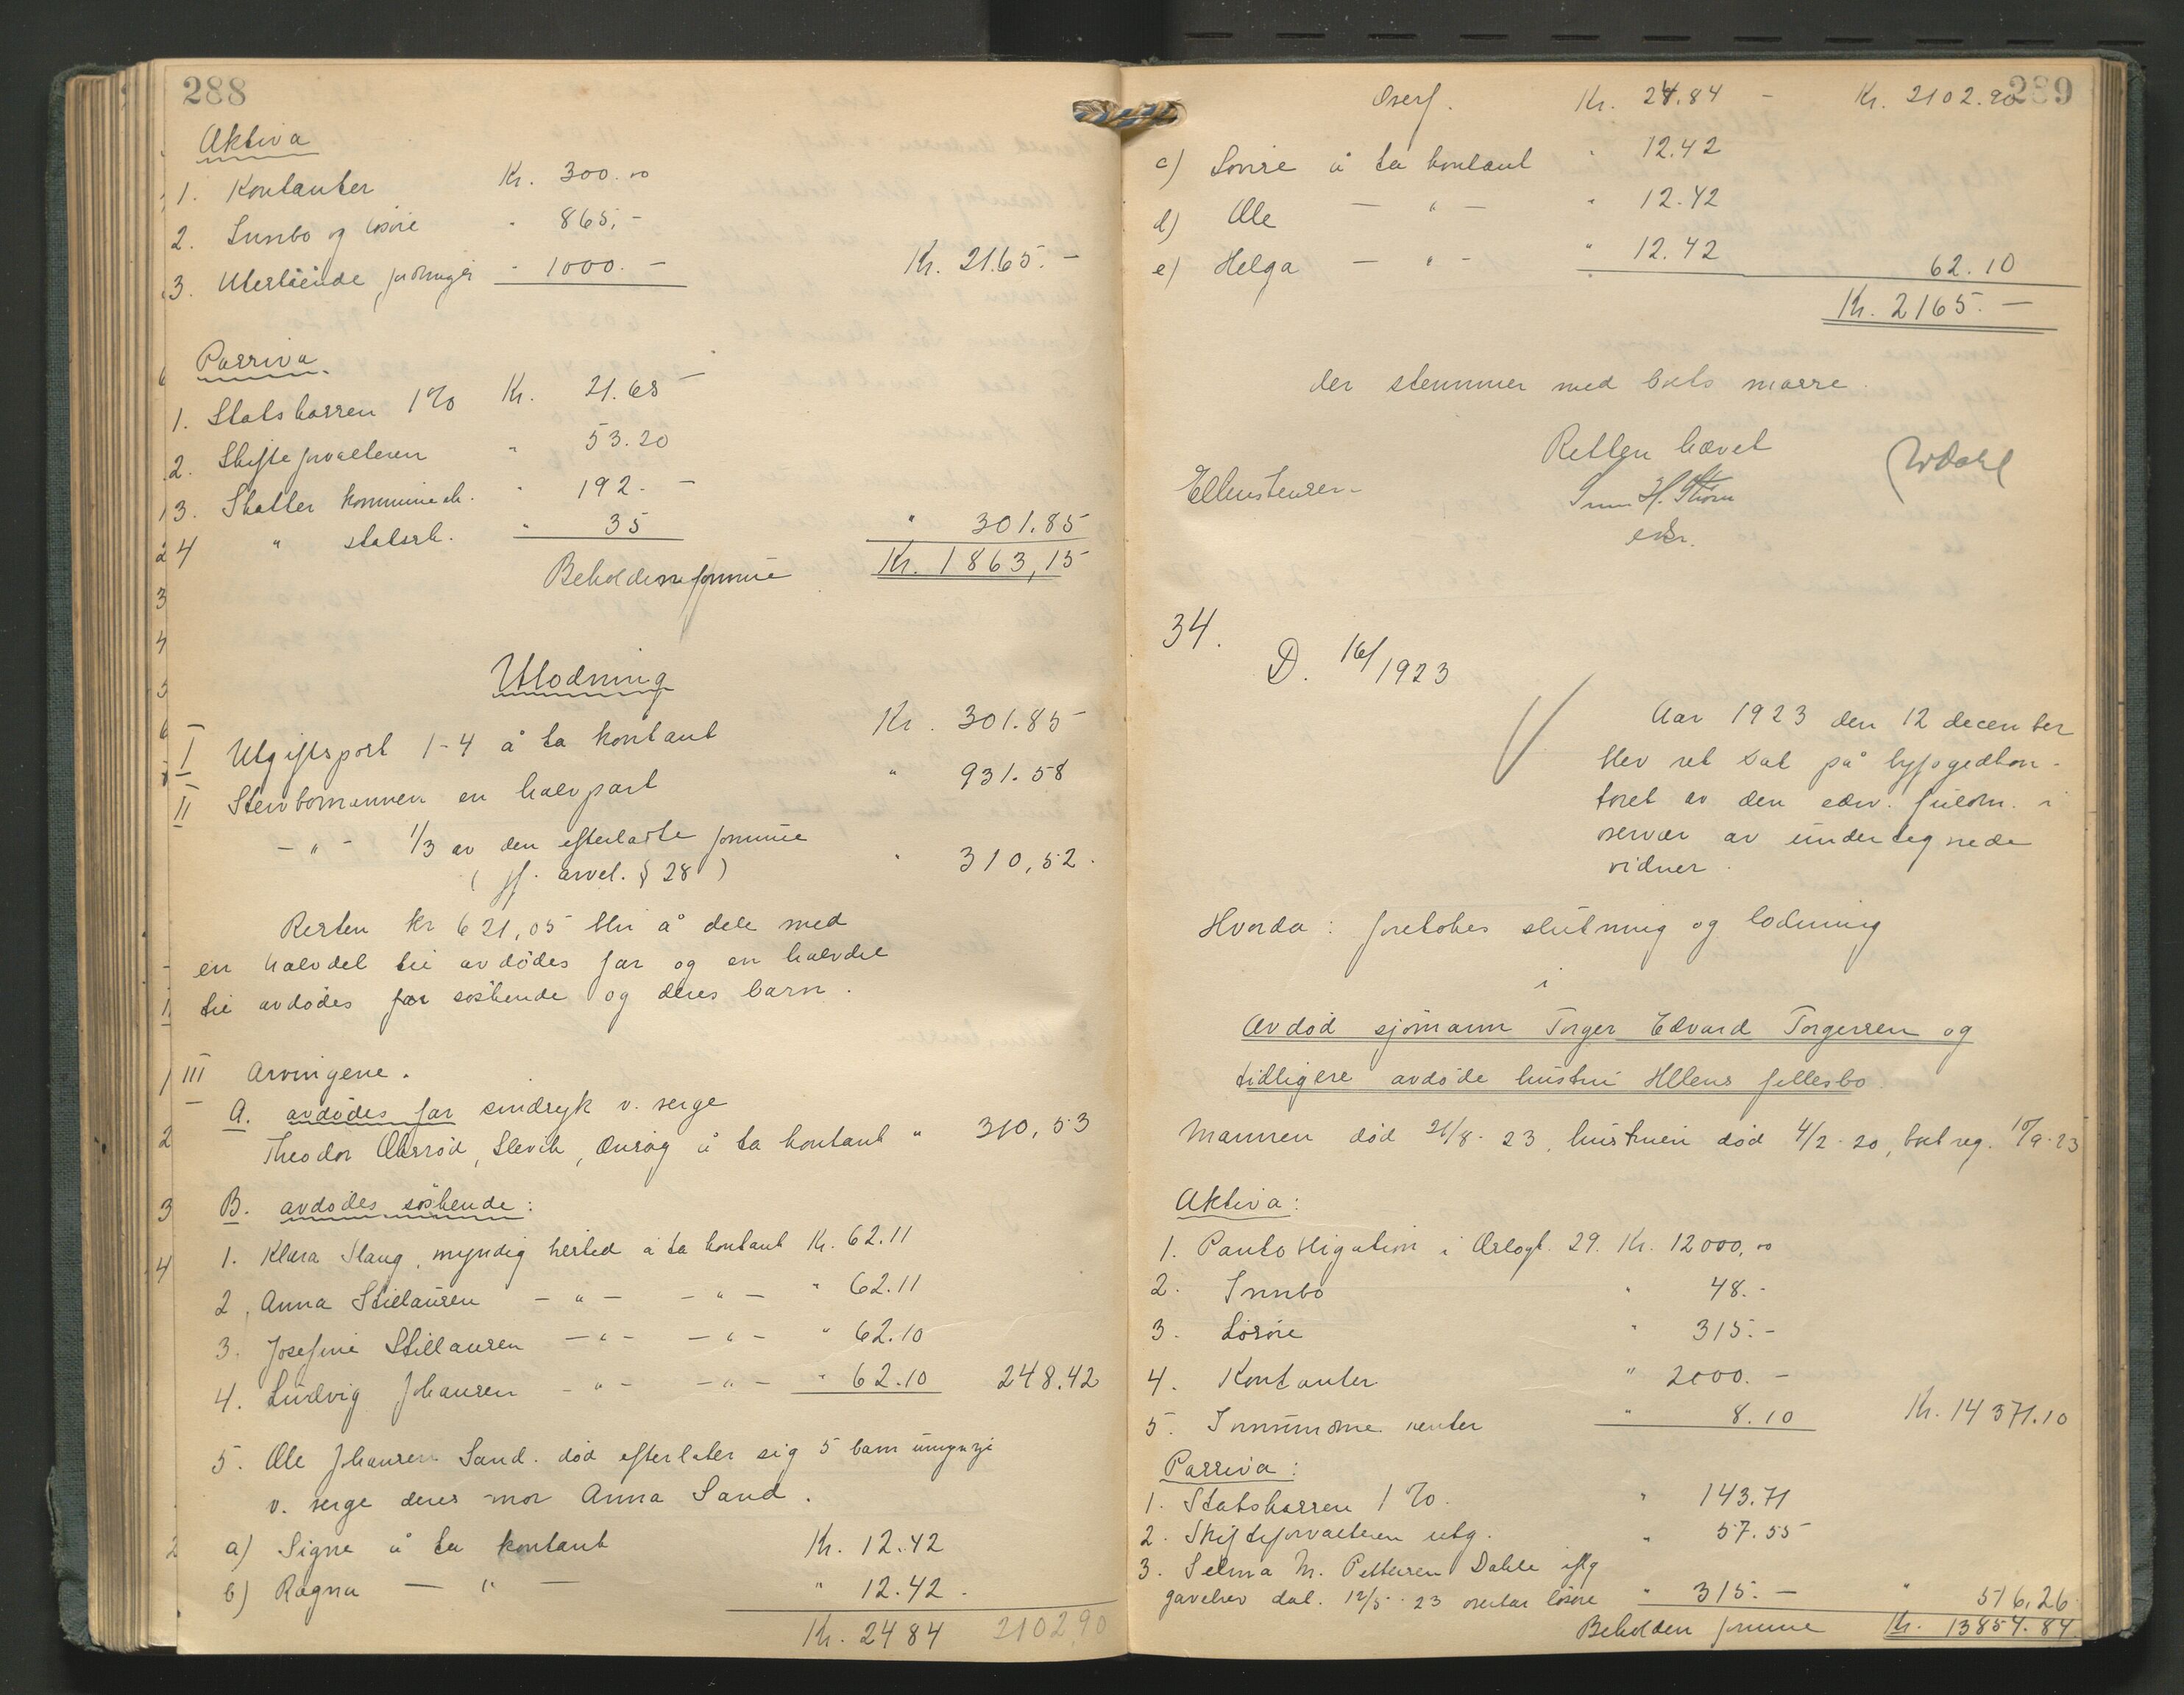 288
Aktiva
1. Kontanter Kr. 300.00
2. Innbo og løsøre " 865,-
3. Utestående fordringer " 1000.- Kr. 2165.-
Passiva
1. Statskassen 1% Kr. 21.65
2. Skifteforvalteren " 53.20
3. Skatter kommunesk. " 192.-
4 " statssk. " 35 " 301.85
Beholden formue Kr. 1863,15
Utlodning
I Utgiftspost 1-4 å ta kontant Kr. 301.85
II Stervbomannen en halvpart " 931.58
- " - 1/3 av den efterlatte formue
( jf. arvel. § 28 ) " 310,52.
Resten kr 621,05 blir å dele med
en halvdel til avdødes far og en halvdel
til avdødes søskende og deres barn.
III Arvingene.
A. avdødes far sindsyk v. verge
Theodor Ålerød, Slevik, Onsøy å ta kontant " 310,53
B. avdødes søskende:
1. Klara Slaug, myndig hersted å ta kontant Kr. 62.11
2. Anna Stillausen - " - - " - " 62.11
3. Josefine Stillausen - " - - " - " 62.10
4. Ludvig Johansen - " - - " - " 62.10 248.42
5. Ole Johansen Sand. død efterlater sig 5 barn umyndige
v. verge deres mor Anna Sand.
a) Signe å ta kontant Kr. 12.42
b) Ragna — " — " 12.42.
Kr. 24 84 2102,90
289
Overf. Kr. 24.84 - Kr. 2102.90
c) Lovise å ta kontant " 12.42
d) Ole — " — " 12.42
e) Helga — " — " 12.42 62.10
Kr. 2165.—
der stemmer med boets masse.
Retten hævet
E Christensen
WDahl
34.
D. 16/1923
Aar 1923 den 12 december
blev ret sat på byfogedkon-
toret av den edsv. fuldm. i
overvær av undertegnede
vidner.
Hvorda: foretokes slutning og lodning
i
Avdød sjømann Torger Edvard Torgersen og
tidligere avdøde hustru Ellens fellesbo.
Mannen død 21/8-23, hustruen død 4/2-20, boet reg. 10/9-23
Aktiva:
1. Pantobligation i Oslogt. 29. Kr. 12000,00
2. Innbo " 48.-
3. Løsøre " 315.-
4. Kontanter " 2000.-
5. Innvundne renter " 8.10 Kr. 14371.10
Passiva:
1. Statskassen 1%. " 143.71
2. Skifteforvalteren utg. " 57.55
3. Selma M. Pettersen Dahle iflg
gavebrev dat. 12/5-23 overtar løsøre " 315.— " 516,26
Beholden formue Kr. 13854.84